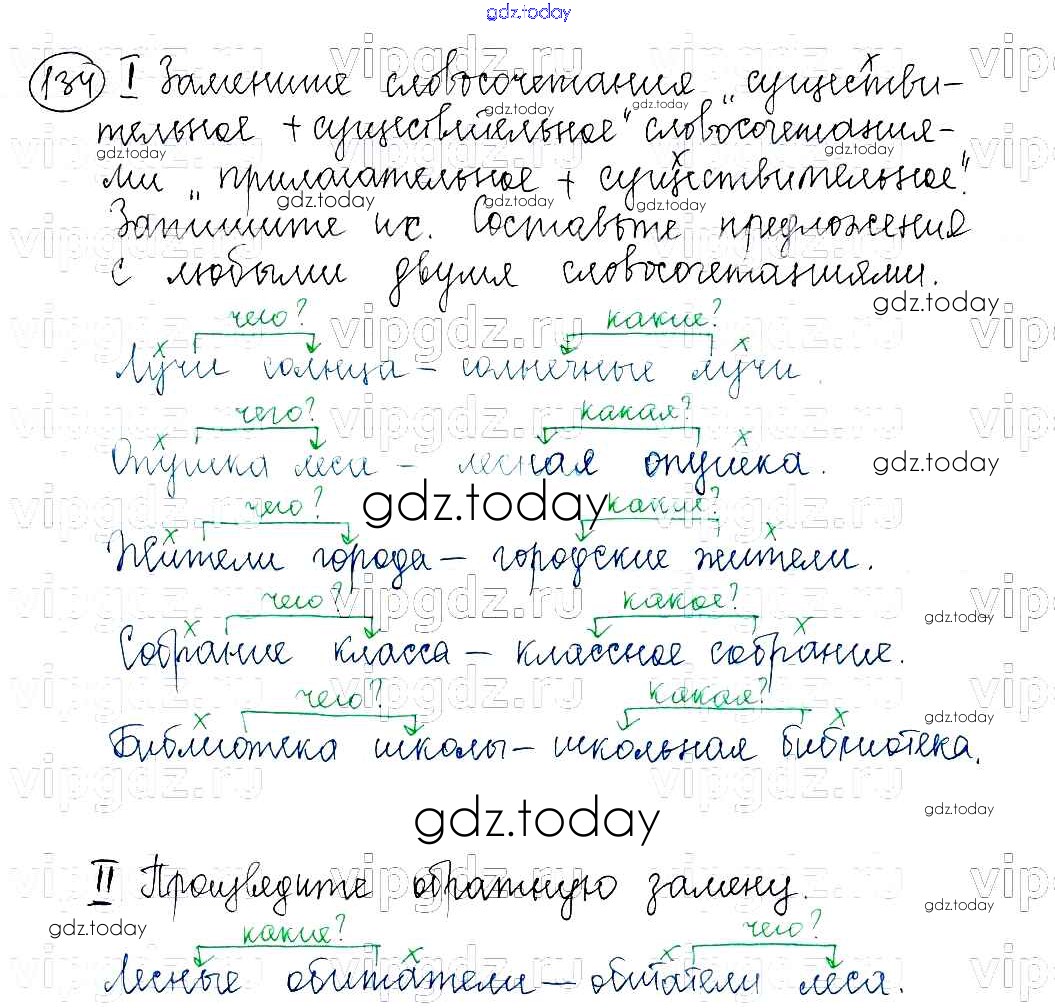 gdz.today
134 I Замените словосочетания „существи-
тельное + существительное“ словосочетания-
ми „прилагательное + существительное“.
Запишите их. Составьте предложения
с любыми двумя словосочетаниями.
чего? какие?
Лучи солнца – солнечные лучи.
чего? какая?
Опушка леса – лесная опушка.
чего? какие?
Жители города – городские жители.
чего? какое?
Собрание класса – классное собрание.
чего? какая?
Библиотека школы – школьная библиотека.
gdz.today
II Произведите обратную замену.
какие? чего?
Лесные обитатели – обитатели леса.